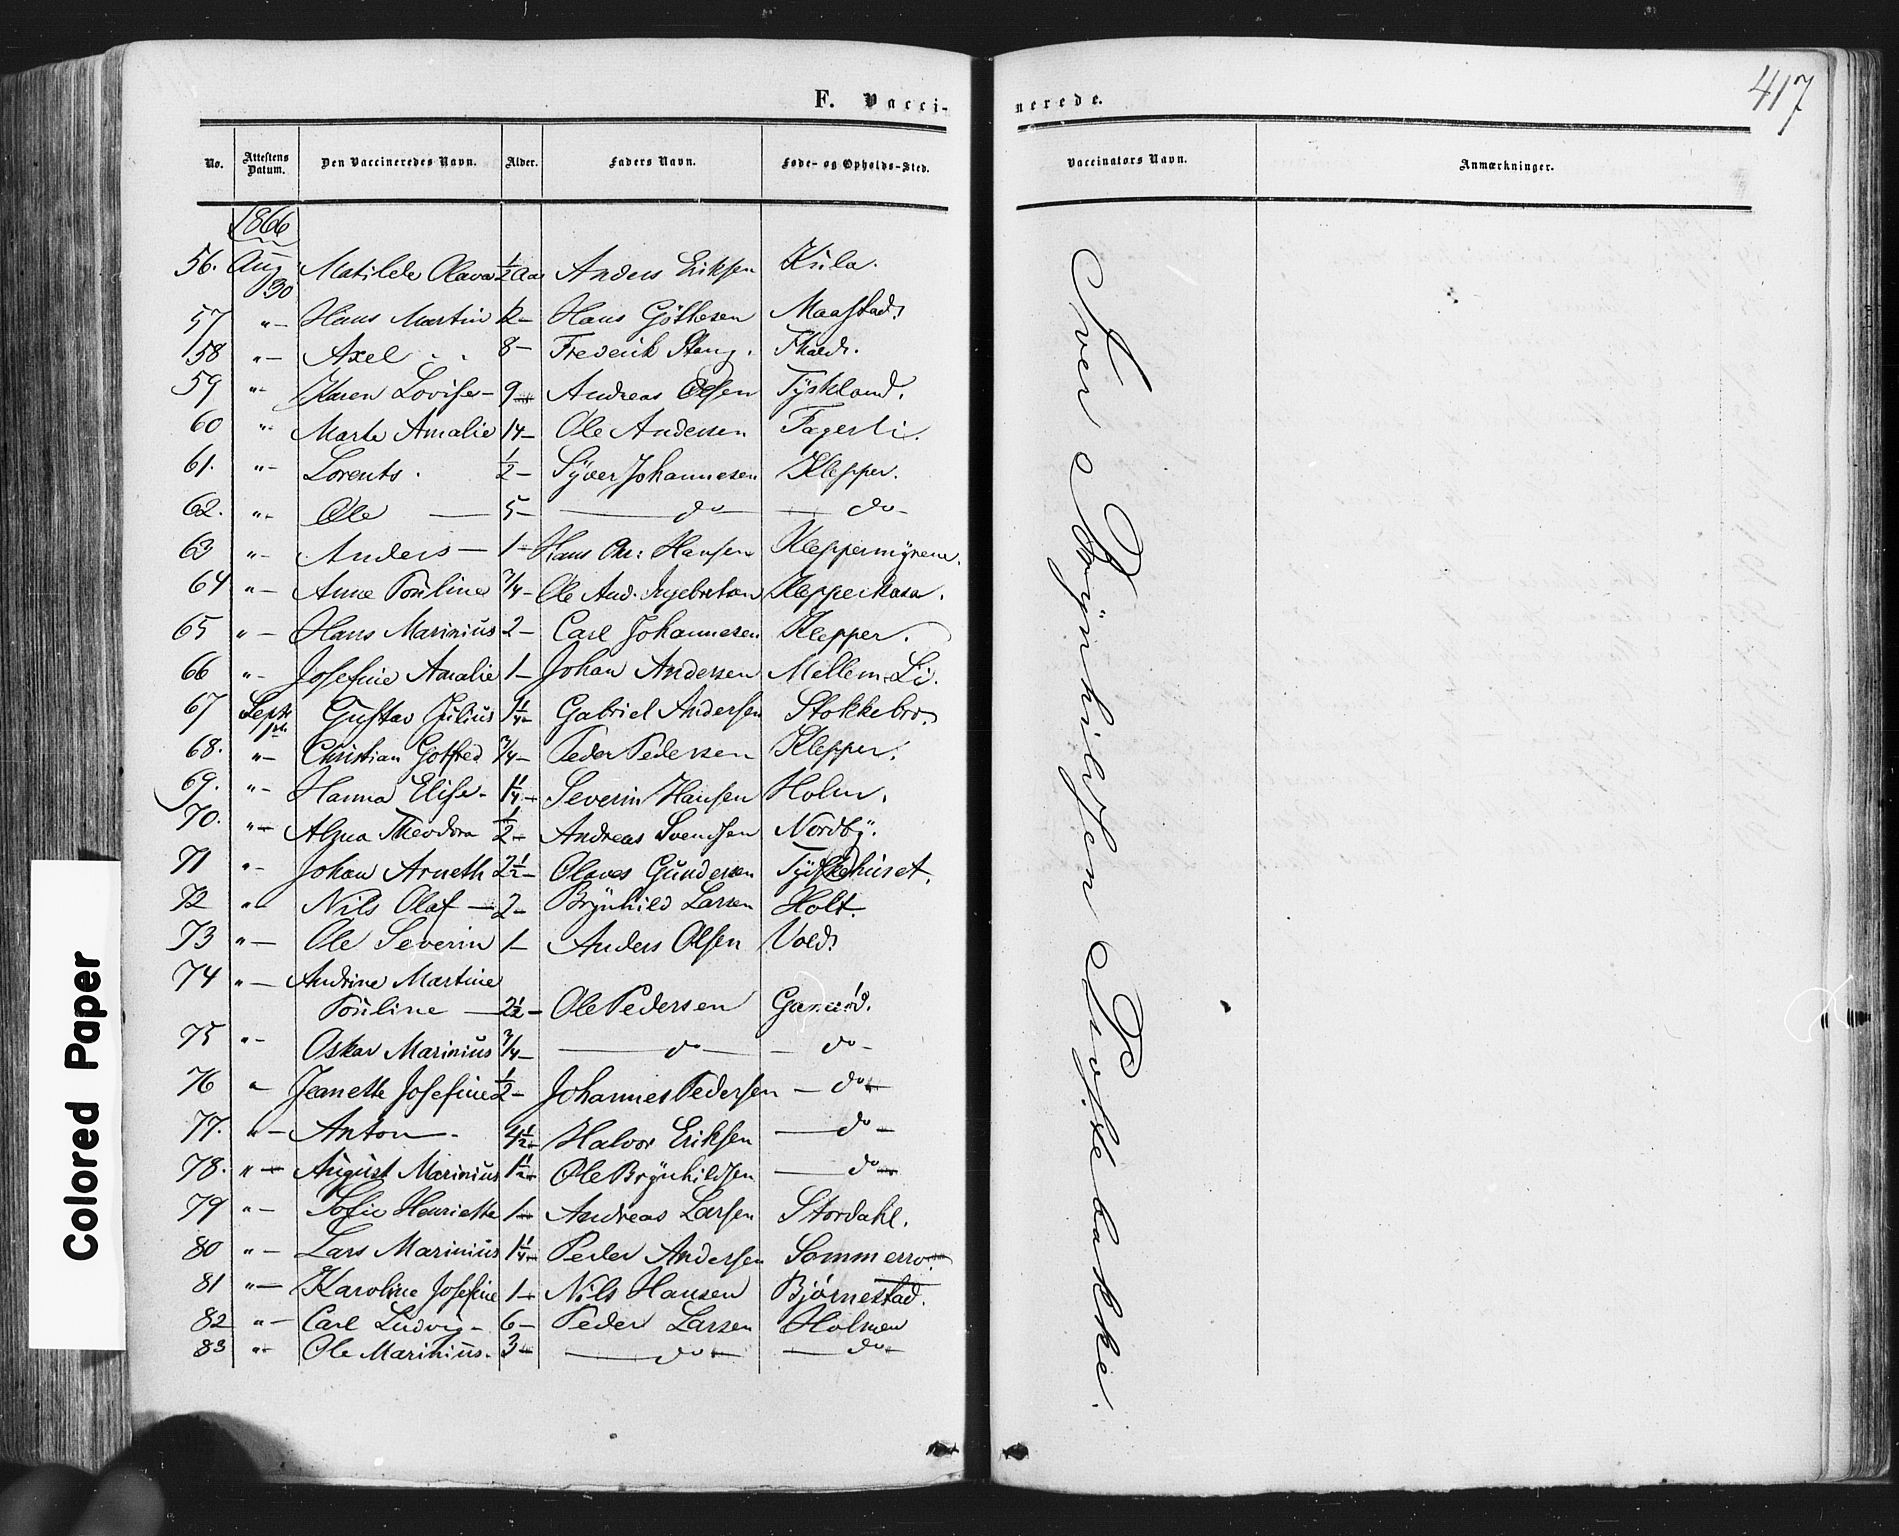 417
F. Vaccinerede.
No. Attestens Datum. Den Vaccineredes Navn. Alder. Faders Navn. Føde- og Opholds-Sted. Vaccinators Navn. Anmærkninger.
1866
56. Aug 30 Matilde Olava ½ Aar Anders Eriksen Kula.
57 "- Hans Martin ½- Hans Göthesen Maastad.
58 "- Axel 8- Frederik Stang.
59 "- Karen Lovise- 9- Andreas Olsen Tyskland.
60 "- Marte Amalie 14- Ole Andersen Fagerli.
61. "- Lorents. ½- Syver Johannesen Klepper.
62. "- Ole — 5- — do — — do -
63 "- Anders — 1- Hans Chr: Hansen Kleppermyrene.
64 "- Anne Pouline ¾- Ole And. Ingebretsen
65 "- Hans Marinius 2- Carl Johannesen Klepper.
66 "- Josefine Amalie 1- Johan Andersen Mellem-Li.
67 Sept 1st. Gustav Julius 1¼- Gabriel Andersen Stokkebro.
68. "- Christian Gotfred ¾- Peder Pedersen Klepper.
69. "- Hanna Elise- 1¼- Severin Hansen Holm.
70. "- Theodora ½- Andreas Svendsen Nordby.
71 "- Johan Arneth 2½- Olaves Gundersen Tydskehuset.
72 "- Nils Olaf — 2- Brynhild Larsen Holt.
73 "- Ole Severin 1- Anders Olsen Vold.
74 "- Andrine Martine
Pouline — 2½- Ole Pedersen
75 "- Oskar Marinius ¾- — do — — do -
76 " Jeanette Josefine ½- Johannes Pedersen — do -
77. "- Anton — 4½- Halvor Eriksen — do -
78. "- August Marinius 1½- Ole Brynhildsen — do -
79 "- Sofie Henriette 1- Andreas Larsen Stordahl.
80 "- Lars Marinius 1¼- Peder Andersen Sommerro.
81 "- Karoline Josefine 1- Nils Hansen Bjørnestad.
82 "- Carl Ludvig - 6- Peder Larsen Holmen
83 "- Ole Marinius. 3- — do — — do -
Iver Brynhildsen Prestebakke.
Colored Paper